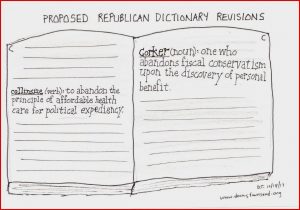 PROPOSED REPUBLICAN DICTIONARY REVISIONS
C
C
collinsine (verb): to abandon the
principle of affordable health
care for political expediency.
Corker (noun): one who
abandons fiscal conservatism
upon the discovery of personal
benefit.